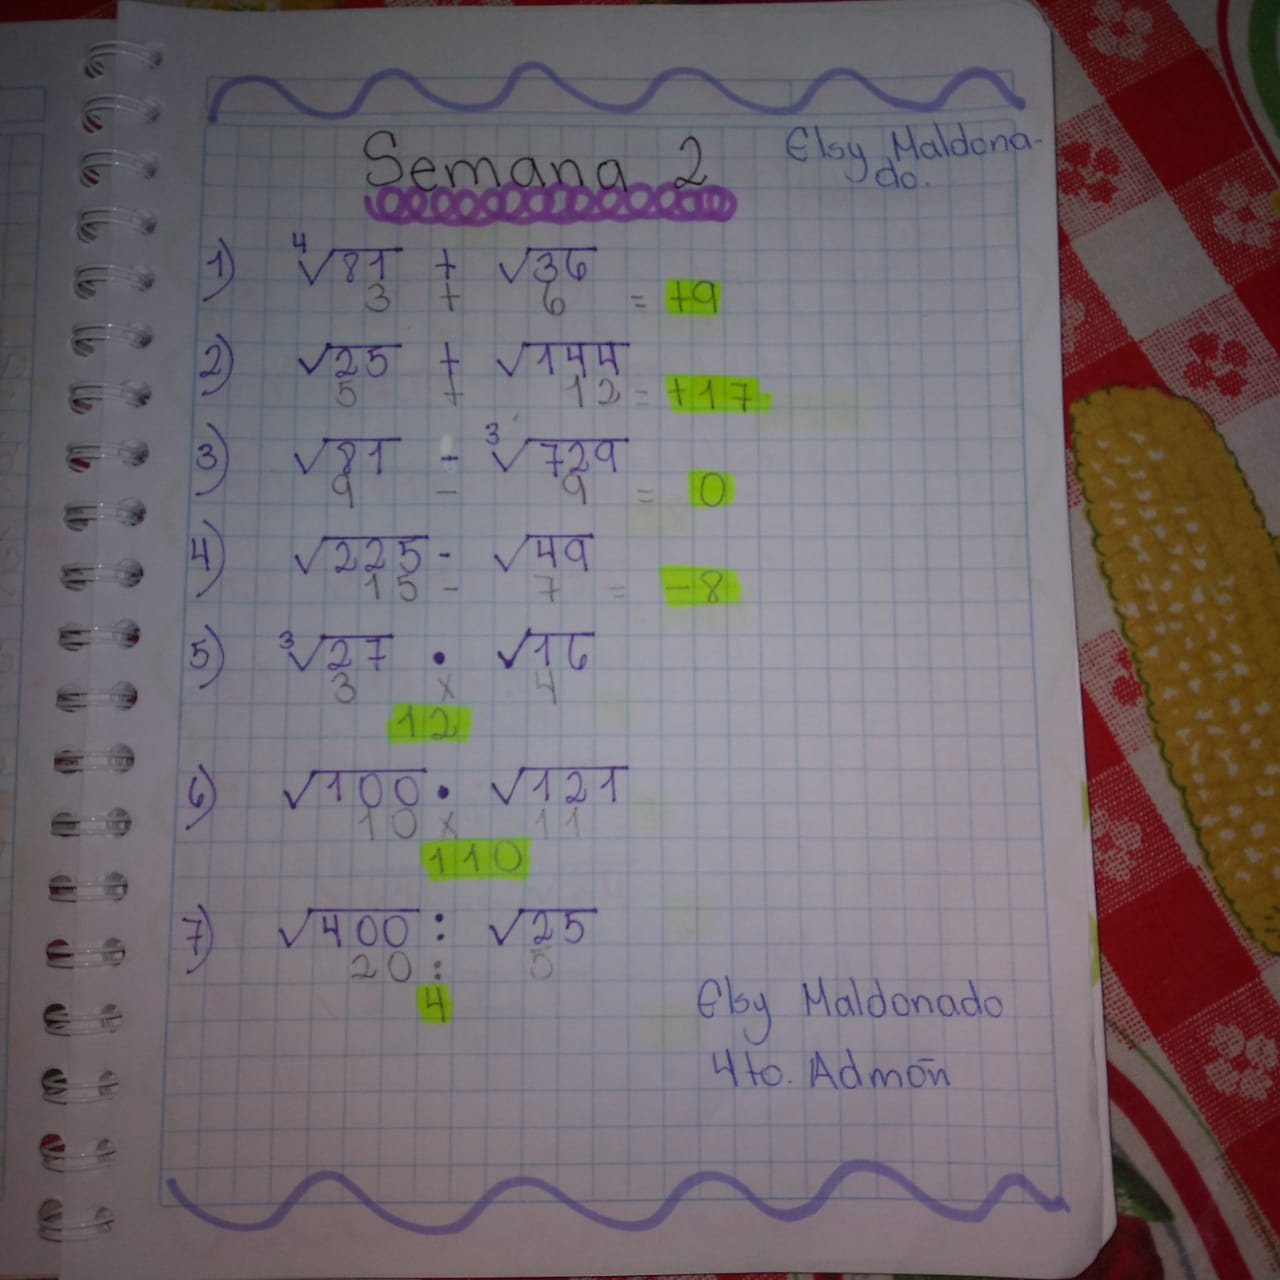 Semana 2
Elsy Maldona-
do.
1) ⁴√81 + √36
3 + 6 = +9
2) √25 + √144
5 + 12 = +17
3) √81 - ³√729
9 - 9 = 0
4) √225 - √49
15 - 7 = -8
5) ³√27 • √16
3 x 4
12
6) √100 • √121
10 x 11
110
7) √400 : √25
20 : 5
4
Elsy Maldonado
4to. Admón